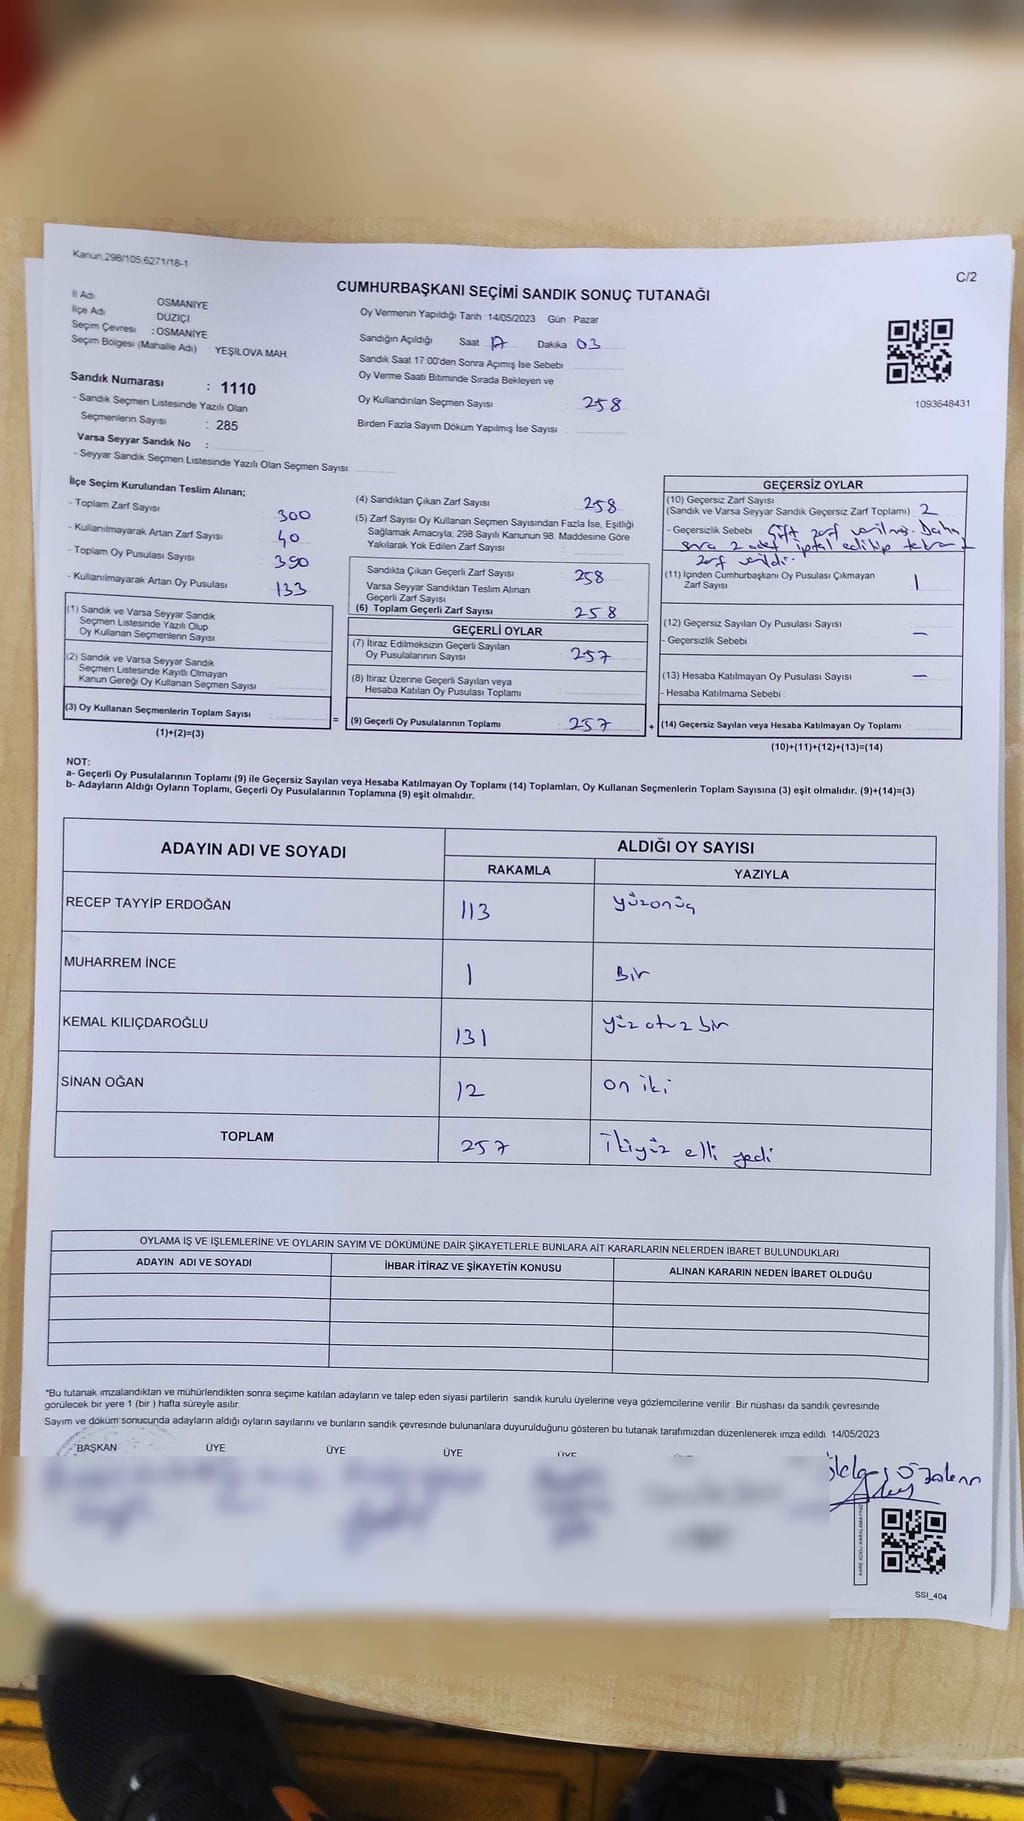 Kanun.298/105;6271/18-1
C/2
CUMHURBAŞKANI SEÇİMİ SANDIK SONUÇ TUTANAĞI
İl Adı OSMANİYE
İlçe Adı DÜZİÇİ
Seçim Çevresi : OSMANİYE
Seçim Bölgesi (Mahalle Adı) : YEŞİLOVA MAH.
Sandık Numarası : 1110
- Sandık Seçmen Listesinde Yazılı Olan
Seçmenlerin Sayısı : 285
Varsa Seyyar Sandık No :
- Seyyar Sandık Seçmen Listesinde Yazılı Olan Seçmen Sayısı:
Oy Vermenin Yapıldığı Tarih : 14/05/2023 Gün : Pazar
Sandığın Açıldığı Saat 17 Dakika 03
Sandık Saat 17:00'den Sonra Açımış İse Sebebi
Oy Verme Saati Bitiminde Sırada Bekleyen ve
Oy Kullandırılan Seçmen Sayısı : 258
Birden Fazla Sayım Döküm Yapılmış İse Sayısı :
1093648431
İlçe Seçim Kurulundan Teslim Alınan;
- Toplam Zarf Sayısı : 300
- Kullanılmayarak Artan Zarf Sayısı : 40
- Toplam Oy Pusulası Sayısı : 390
- Kullanılmayarak Artan Oy Pusulası : 133
(1) Sandık ve Varsa Seyyar Sandık
Seçmen Listesinde Yazılı Olup
Oy Kullanan Seçmenlerin Sayısı :
(2) Sandık ve Varsa Seyyar Sandık
Seçmen Listesinde Kayıtlı Olmayan
Kanun Gereği Oy Kullanan Seçmen Sayısı :
(3) Oy Kullanan Seçmenlerin Toplam Sayısı : =
(1)+(2)=(3)
(4) Sandıktan Çıkan Zarf Sayısı : 258
(5) Zarf Sayısı Oy Kullanan Seçmen Sayısından Fazla İse, Eşitliği
Sağlamak Amacıyla, 298 Sayılı Kanunun 98. Maddesine Göre
Yakılarak Yok Edilen Zarf Sayısı :
Sandıkta Çıkan Geçerli Zarf Sayısı : 258
Varsa Seyyar Sandıktan Teslim Alınan
Geçerli Zarf Sayısı :
(6) Toplam Geçerli Zarf Sayısı : 258
GEÇERLİ OYLAR
(7) İtiraz Edilmeksizin Geçerli Sayılan
Oy Pusulalarının Sayısı : 257
(8) İtiraz Üzerine Geçerli Sayılan veya
Hesaba Katılan Oy Pusulası Toplamı :
(9) Geçerli Oy Pusulalarının Toplamı : 257 +
GEÇERSİZ OYLAR
(10) Geçersiz Zarf Sayısı
(Sandık ve Varsa Seyyar Sandık Geçersiz Zarf Toplamı) : 2
- Geçersizlik Sebebi : Çift zarf verilmiş. Daha
sonra 2 adet iptal edilip tekrar 1
zarf verildi.
(11) İçinden Cumhurbaşkanı Oy Pusulası Çıkmayan
Zarf Sayısı : 1
(12) Geçersiz Sayılan Oy Pusulası Sayısı : —
- Geçersizlik Sebebi :
(13) Hesaba Katılmayan Oy Pusulası Sayısı : —
- Hesaba Katılmama Sebebi :
(14) Geçersiz Sayılan veya Hesaba Katılmayan Oy Toplamı :
(10)+(11)+(12)+(13)=(14)
NOT:
a- Geçerli Oy Pusulalarının Toplamı (9) ile Geçersiz Sayılan veya Hesaba Katılmayan Oy Toplamı (14) Toplamları, Oy Kullanan Seçmenlerin Toplam Sayısına (3) eşit olmalıdır. (9)+(14)=(3)
b- Adayların Aldığı Oyların Toplamı, Geçerli Oy Pusulalarının Toplamına (9) eşit olmalıdır.
ADAYIN ADI VE SOYADI ALDIĞI OY SAYISI
RAKAMLA YAZIYLA
RECEP TAYYİP ERDOĞAN 113 yüzonüç
MUHARREM İNCE 1 Bir
KEMAL KILIÇDAROĞLU 131 yüz otuz bir
SİNAN OĞAN 12 on iki
TOPLAM 257 ikiyüz elli yedi
OYLAMA İŞ VE İŞLEMLERİNE VE OYLARIN SAYIM VE DÖKÜMÜNE DAİR ŞİKAYETLERLE BUNLARA AİT KARARLARIN NELERDEN İBARET BULUNDUKLARI
ADAYIN ADI VE SOYADI İHBAR İTİRAZ VE ŞİKAYETİN KONUSU ALINAN KARARIN NEDEN İBARET OLDUĞU
*Bu tutanak imzalandıktan ve mühürlendikten sonra seçime katılan adayların ve talep eden siyasi partilerin sandık kurulu üyelerine veya gözlemcilerine verilir. Bir nüshası da sandık çevresinde
görülecek bir yere 1 (bir ) hafta süreyle asılır.
Sayım ve döküm sonucunda adayların aldığı oyların sayılarını ve bunların sandık çevresinde bulunanlara duyurulduğunu gösteren bu tutanak tarafımızdan düzenlenerek imza edildi. 14/05/2023
BAŞKAN ÜYE ÜYE ÜYE ÜYE
SSI_404